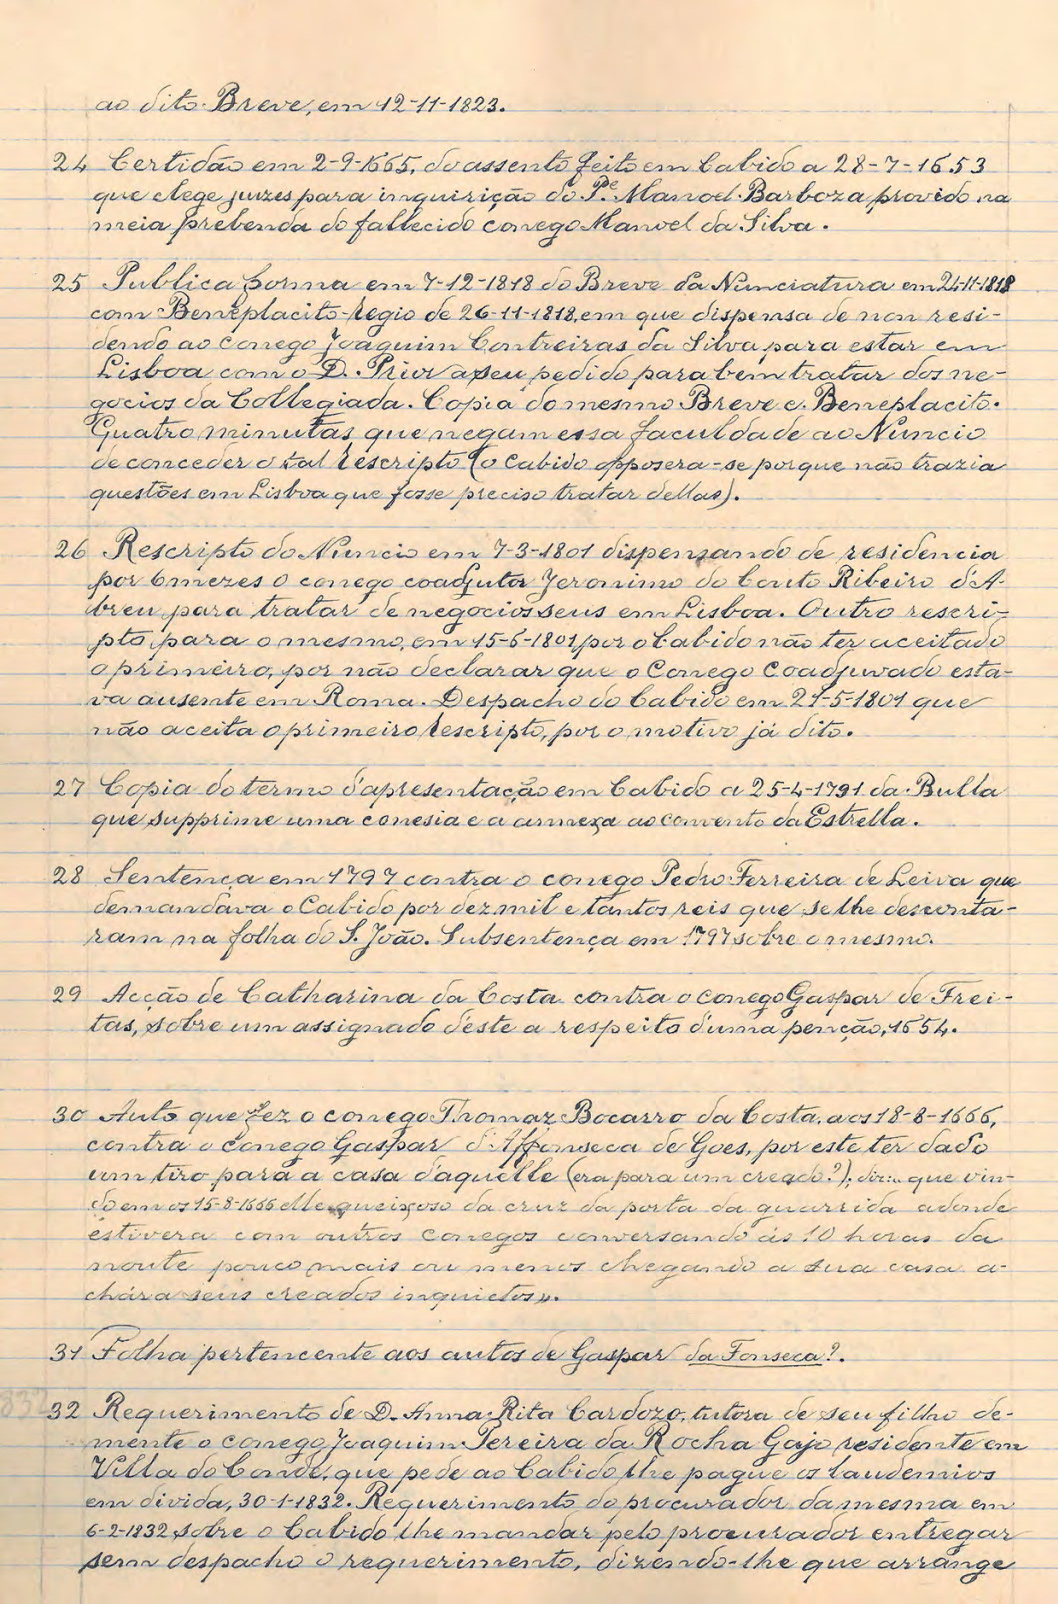 ao dito Breve, em 12-11-1823.
24 Certidão em 2-9-1665, do assento feito em Cabido a 28-7-1653
que elege juizes para inquirição do P.e Manoel Barboza provido na
meia prebenda do fallecido conego Manoel da Silva.
25 Publica forma em 7-12-1818 do Breve da Nunciatura em 24-11-1818
com Beneplacito regio de 26-11-1818, em que dispensa de non resi-
dendo ao conego Joaquim Contreiras da Silva, para estar em
Lisboa com o D. Prior a seu pedido para bem tratar dos ne-
gocios da Collegiada. Copia do mesmo Breve e Beneplacito.
Quatro minutas que negam essa faculdade ao Nuncio
de conceder o tal rescripto (o Cabido opposera-se porque não trazia
questões em Lisboa que fosse preciso tratar dellas).
26 Rescripto do Nuncio em 7-3-1801 dispensando de residencia
por 6 mezes o conego coadjutor Jeronimo do Couto Ribeiro d'A-
breu para tratar de negocios seus em Lisboa. Outro rescri-
pto para o mesmo, em 15-6-1801, por o Cabido não ter aceitado
o primeiro, por não declarar que o Conego Coadjuvado esta-
va ausente em Roma. Despacho do Cabido em 21-5-1801 que
não aceita o primeiro rescripto, por o motivo já dito.
27 Copia do termo d'apresentação em Cabido a 25-4-1791 da Bulla
que supprime uma conesia e a annexa ao convento da Estrella.
28 Sentença em 1797 contra o conego Pedro Ferreira de Leiva que
demandava o Cabido por dez mil e tantos reis que se lhe desconta-
ram na folha do S. João. Subsentença em 1797 sobre o mesmo.
29 Acção de Catharina da Costa contra o conego Gaspar de Frei-
tas, sobre um assignado d'este a respeito d'uma penção, 1654.
30 Auto que fez o conego Thomaz Bocarro da Costa, aos 18-8-1666,
contra o conego Gaspar d'Affonseca de Goes, por este ter dado
um tiro para a casa d'aquelle (era para um creado?); que vin-
do em os 15-8-1666 elle queixoso da cruz da porta da guarrida adonde
estivera com outros conegos conversando ás 10 horas da
noute pouco mais ou menos chegando a sua casa a-
chára seus creados inquietos».
31 Folha pertencente aos autos de Gaspar da Fonseca?.
32 Requerimento de D. Anna Rita Cardozo, tutora de seu filho de-
mente o conego Joaquim Pereira da Rocha Gajo residente em
Villa do Conde, que pede ao Cabido lhe pague os laudemios
em divida, 30-1-1832. Requerimento do procurador da mesma em
6-2-1832, sobre o Cabido lhe mandar pelo procurador entregar
sem despacho o requerimento, dizendo-lhe que arrange